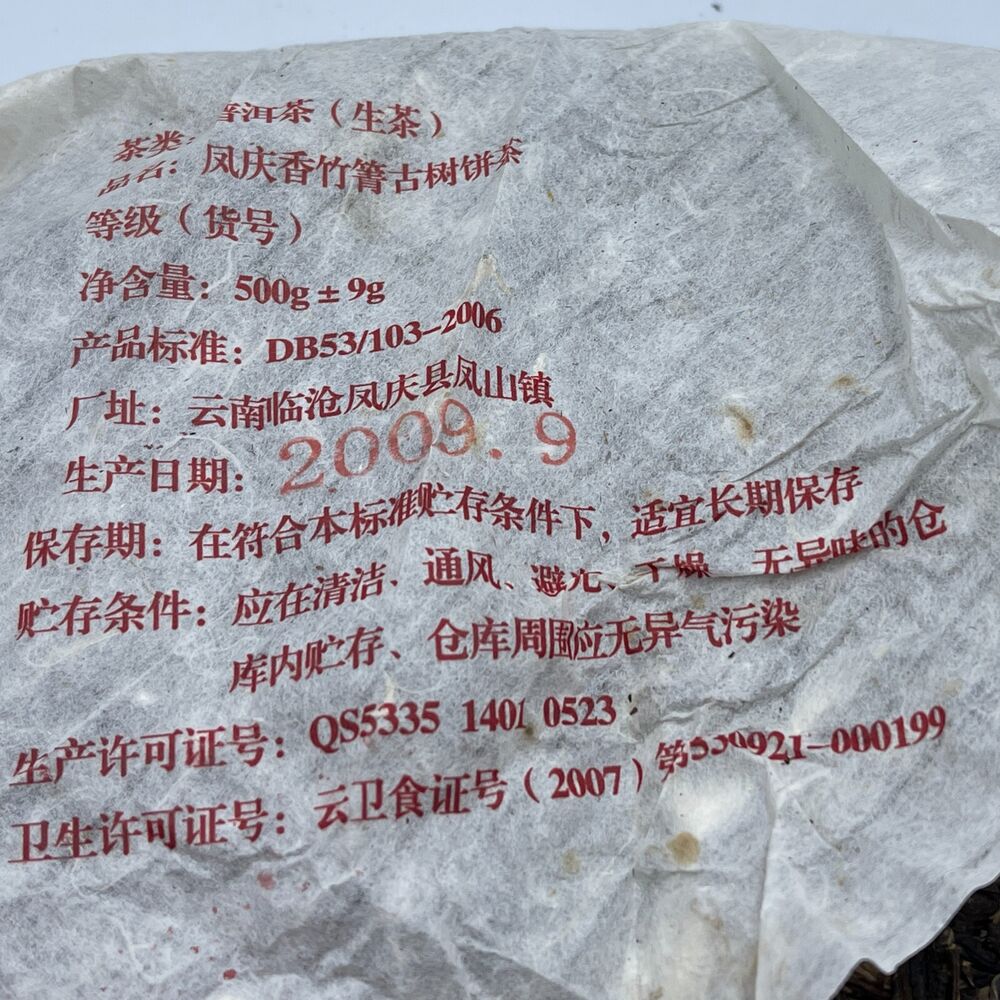 茶类：普洱茶（生茶）
品名：凤庆香竹箐古树饼茶
等级（货号）
净含量：500g±9g
产品标准：DB53/103-2006
厂址：云南临沧凤庆县凤山镇
生产日期：2009.9
保存期：在符合本标准贮存条件下，适宜长期保存
贮存条件：应在清洁、通风、避光、干燥、无异味的仓
库内贮存、仓库周围应无异气污染
生产许可证号：QS5335 1401 0523
卫生许可证号：云卫食证号（2007）第530921-000199